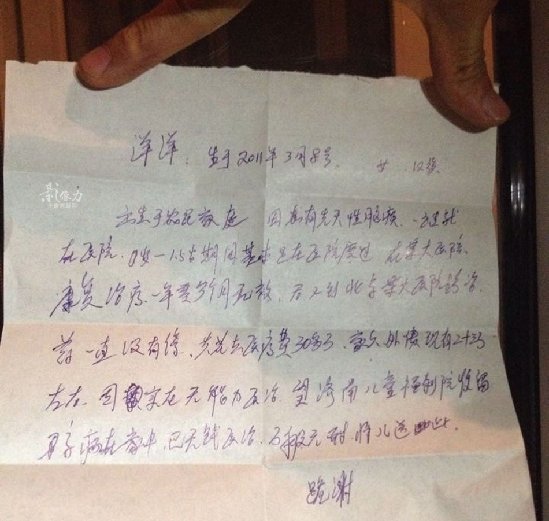 洋洋: 生于2011年3月8号. 女.
影像力
出生于农民家庭 因患有先天性脑病. 一出生就
在医院. 0岁-1.5岁期间基本是在医院度过 在某大医院.
康复治疗一年零3个月无效. 后又到北京某大医院诊治.
药一直没有停. 共花去医疗费30多万. 家庭外债现有2十多万
左右. 因实在无能力医治. 望济南儿童福利院收留
孩子病在家中. 已无钱医治. 万般无耐将儿送此.
跪谢